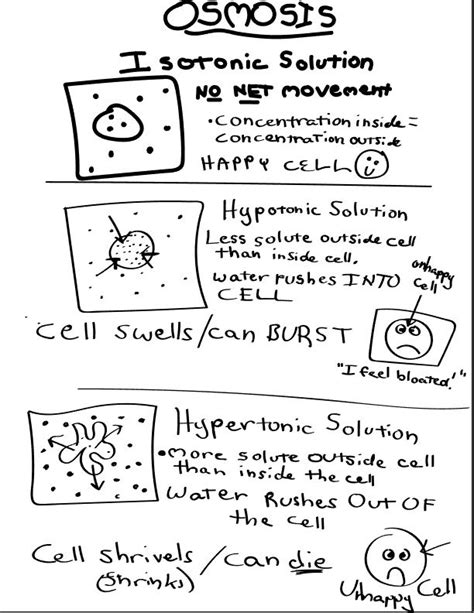 OSMOSIS
Isotonic Solution
NO NET movement
• Concentration inside =
concentration outside
HAPPY CELL
Hypotonic Solution
Less solute outside cell
than inside cell.
water rushes INTO
CELL
unhappy
cell
Cell swells/can BURST
"I feel bloated!"
Hypertonic Solution
• More solute outside cell
than inside the cell
Water Rushes Out OF
the cell
Cell shrivels / can die
(shrinks)
Unhappy Cell